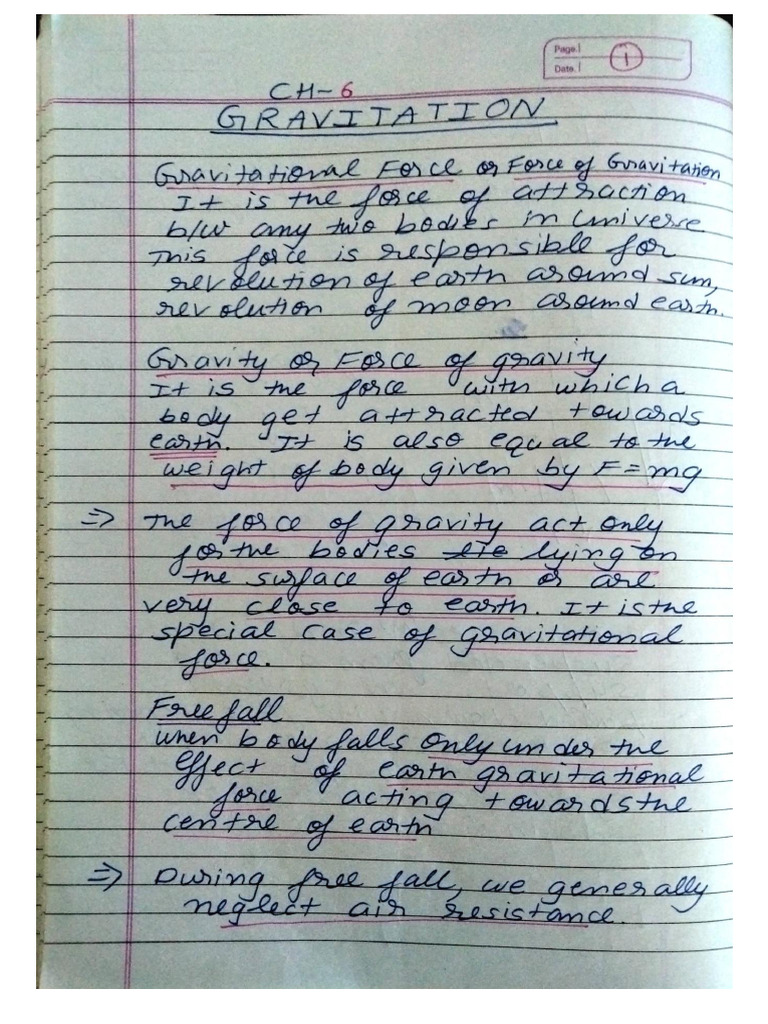 Page.
1
Date.
CH-6
GRAVITATION
Gravitational Force or Force of Gravitation
It is the force of attraction
b/w any two bodies in universe
This force is responsible for
revolution of earth around sun,
revolution of moon around earth.
Gravity or Force of gravity
It is the force with which a
body get attracted towards
earth. It is also equal to the
weight of body given by F=mg
⇒ The force of gravity act only
for the bodies lie lying on
the surface of earth or are
very close to earth. It is the
special case of gravitational
force.
Free fall
When body falls only under the
effect of earth gravitational
force acting towards the
centre of earth
⇒ During free fall, we generally
neglect air resistance.